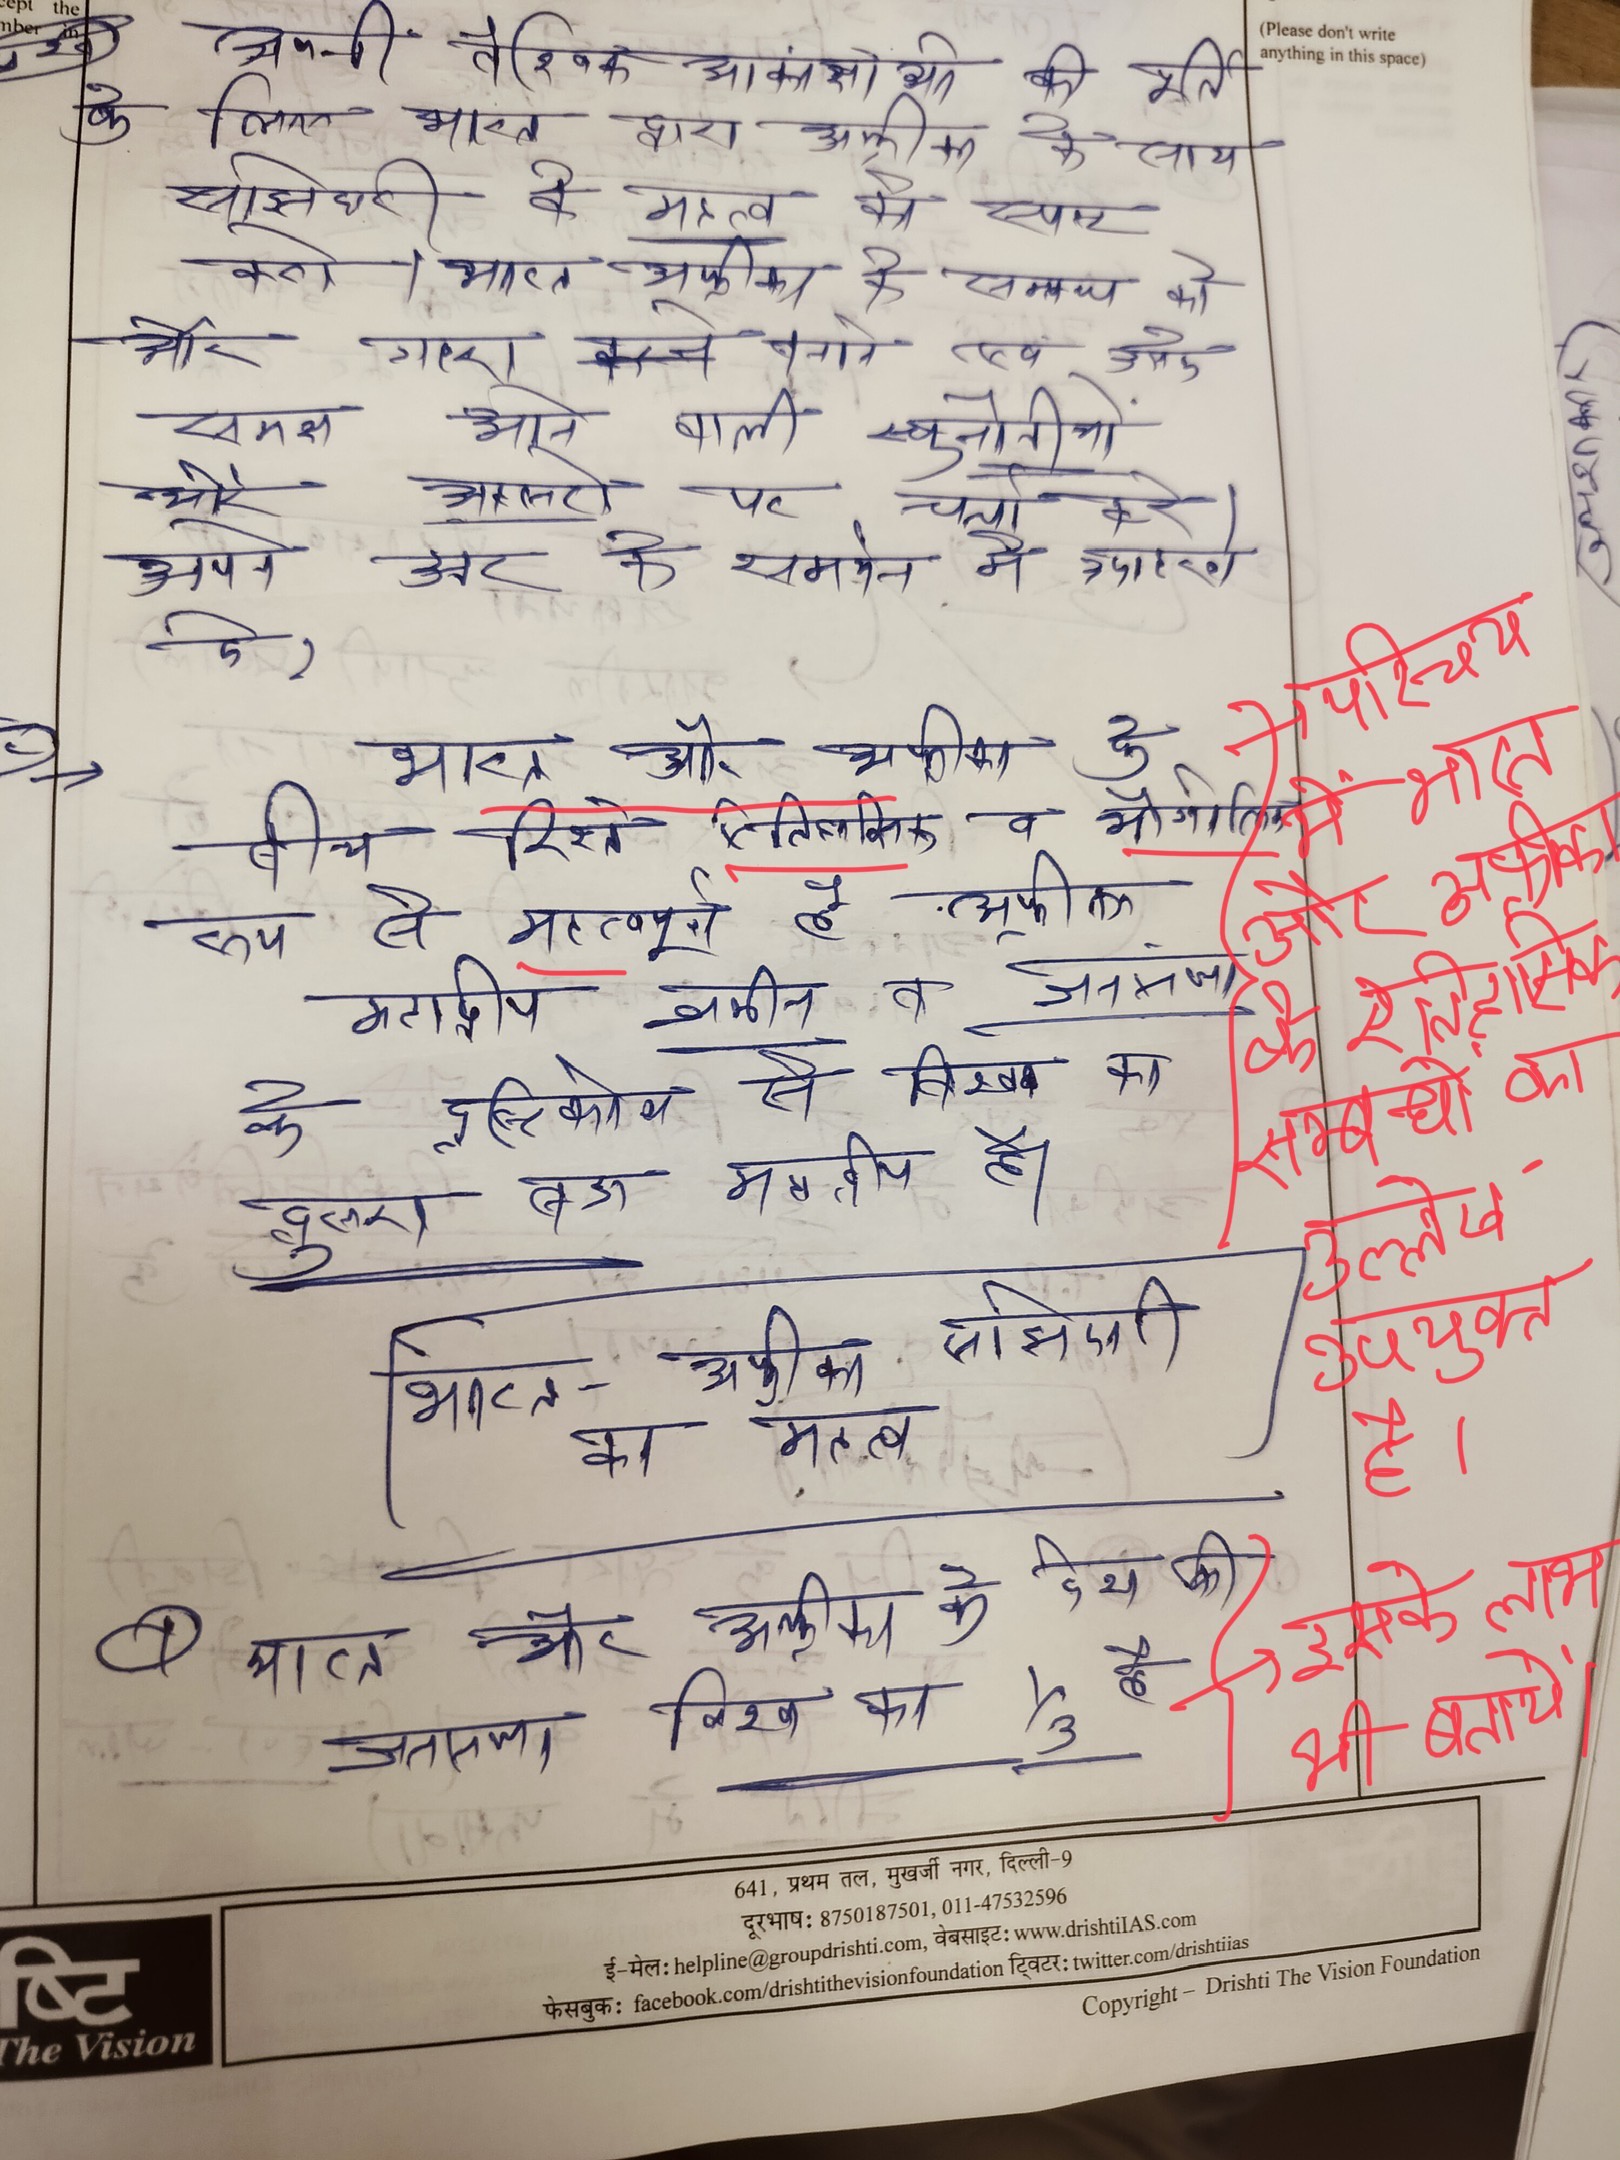 cept the
mber in
(Please don't write
anything in this space)
अपनी वैश्विक आकांक्षाओं की पूर्ति
के लिए भारत द्वारा अफ्रीका के साथ
साझेदारी के महत्व को स्पष्ट
करो। भारत अफ्रीका के सम्बन्ध को
और गहरा करने बनाने एवं उनके
समक्ष आने वाली चुनौतीयों
और अवसरों पर चर्चा करे।
अपने उत्तर के समर्थन में उदाहरण
दि।
भारत और अफ्रीका के
बीच रिश्ते ऐतिहासिक व भौगोलिक
रूप से महत्वपूर्ण है अफ्रीका
महाद्वीप जमीन व जनसंख्या
के दृष्टिकोण से विश्व का
दुसरा बड़ा महाद्वीप है।
भारत - अफ्रीका साझेदारी
का महत्व
① भारत और अफ्रीका के देश की
जनसंख्या विश्व का 1/3 है
→ परिचय
में भारत
और अफ्रीका
के ऐतिहासिक
सम्बन्धों का
उल्लेख
उपयुक्त
है।
→ इसके लाभ
भी बतायें।
641, प्रथम तल, मुखर्जी नगर, दिल्ली-9
दूरभाष: 8750187501, 011-47532596
ई-मेल: helpline@groupdrishti.com, वेबसाइट: www.drishtiIAS.com
फेसबुक: facebook.com/drishtithevisionfoundation ट्विटर: twitter.com/drishtiias
Copyright – Drishti The Vision Foundation
ष्टि
The Vision